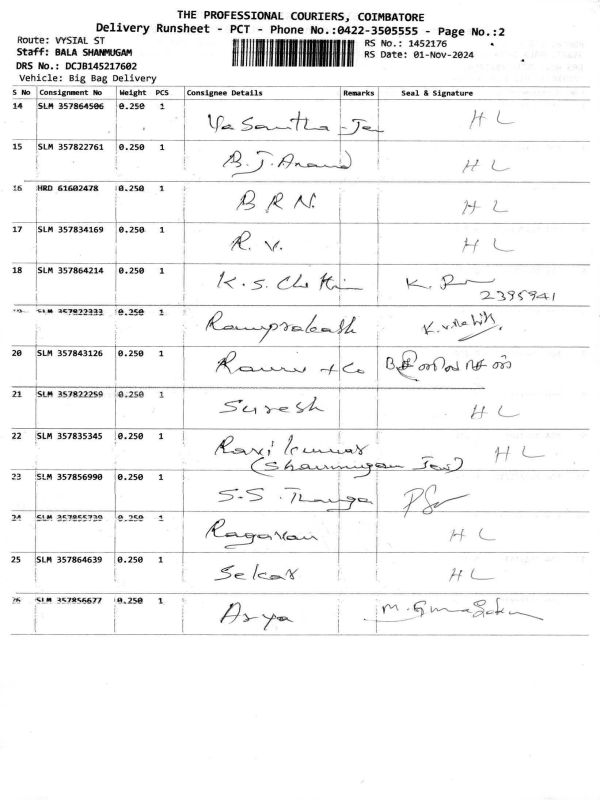 THE PROFESSIONAL COURIERS, COIMBATORE
Delivery Runsheet - PCT - Phone No.:0422-3505555 - Page No.:2
Route: VYSIAL ST
RS No.: 1452176
Staff: BALA SHANMUGAM
RS Date: 01-Nov-2024
DRS No.: DCJB145217602
Vehicle: Big Bag Delivery
S No Consignment No Weight PCS Consignee Details Remarks Seal & Signature
14 SLM 357864506 0.250 1 Vasantha Je H L
15 SLM 357822761 0.250 1 B. J. Anand H L
16 HRD 61602478 0.250 1 B R N. H L
17 SLM 357834169 0.250 1 R. V. H L
18 SLM 357864214 0.250 1 K. S. K.
2395941
19 SLM 357822333 0.250 1 Ramprakash
20 SLM 357843126 0.250 1 + Co
21 SLM 357822259 0.250 1 Suresh H L
22 SLM 357835345 0.250 1 Ravi kumar H L
(Shanmugam Jew)
23 SLM 357856990 0.250 1 S.S. Thanga
24 SLM 357855739 0.250 1 Ragavan H L
25 SLM 357864639 0.250 1 Sekar H L
26 SLM 357856677 0.250 1 Arya M.